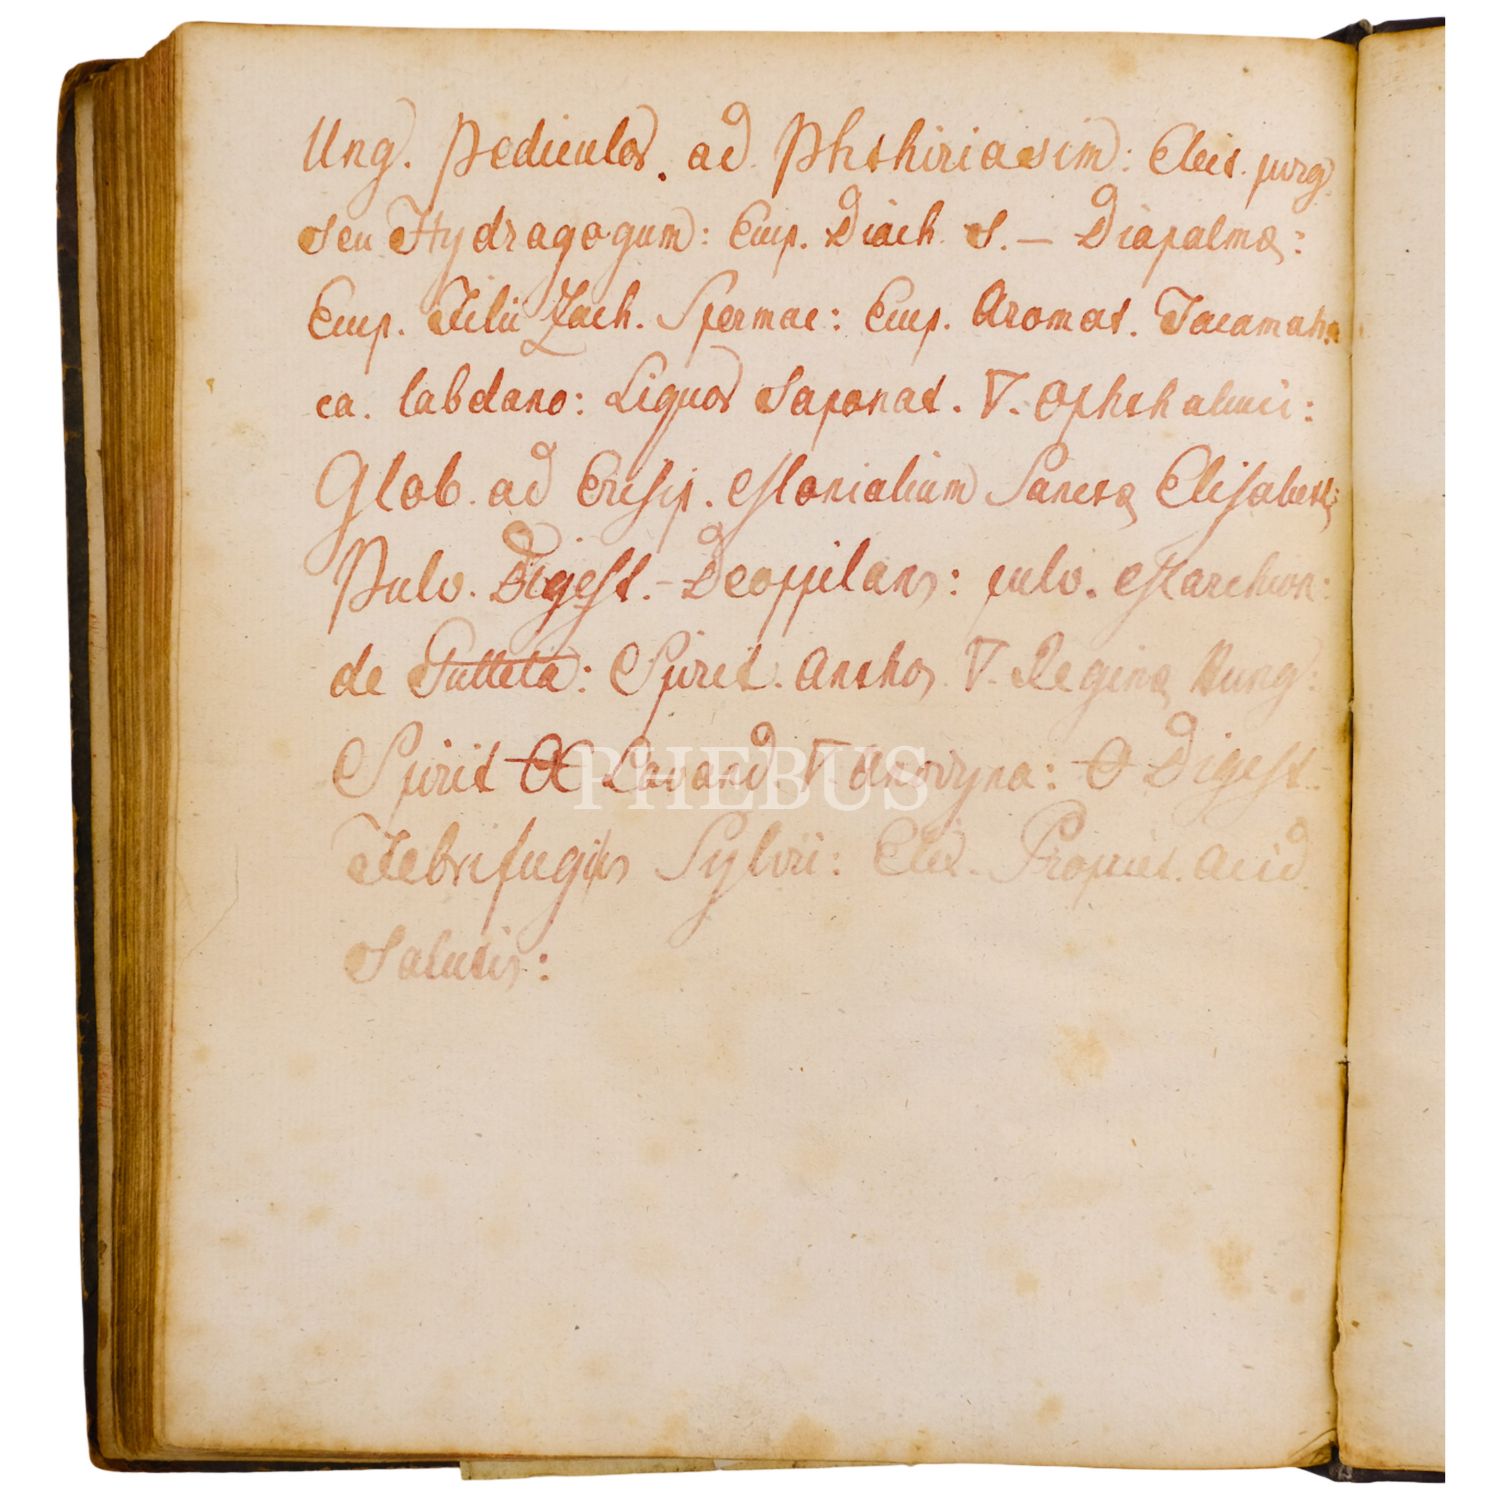 Ung. Pediculor. ad Phthiriasim: Elect. purg.
seu Hydragogum: Emp. Diach. S. – Diapalmæ:
Emp. Filii Zach. Spermac: Emp. Aromat. Tacamaha
ca. labdano: Liquor Saponat. ▽. Ophthalmic:
Glob. ad Erisip. Monialium Sanctæ Elisabeth:
Pulv. Digest. – Deoppilans: pulv. Marchion:
de Guttetâ: Spirit. Anthos ▽. Reginæ Hung:
Spirit Lavand. ▽. Anodyna: Digest.
Febrifugus Sylvii: Elix. Propriet. Acid
Salutis:
PHEBUS